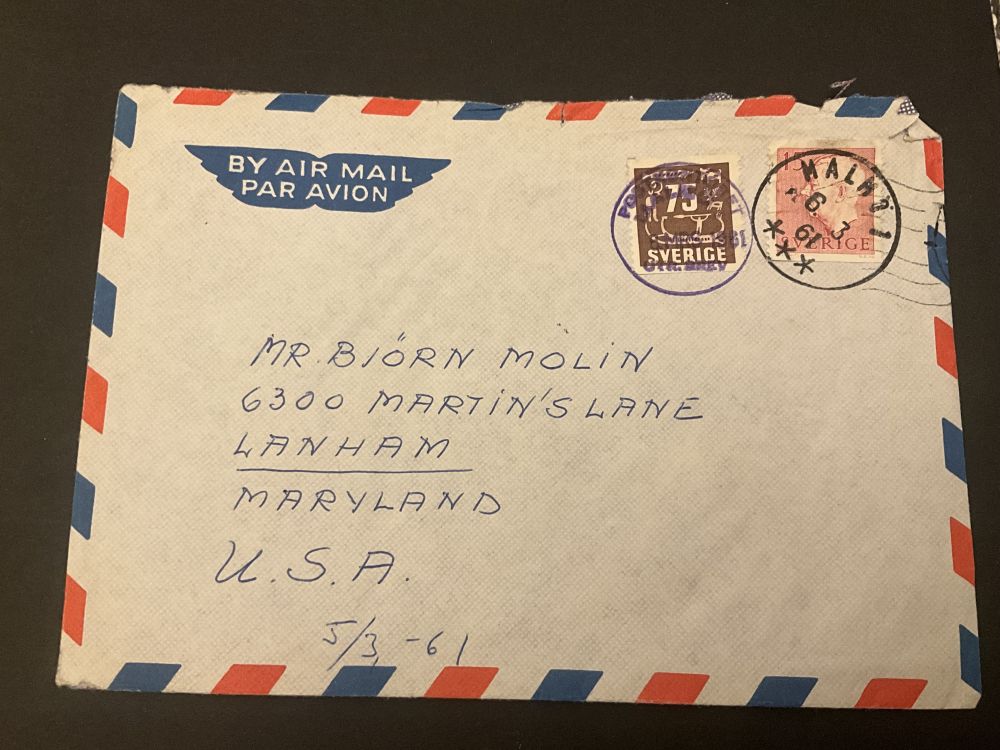 BY AIR MAIL
PAR AVION
75
SVERIGE
15
SVERIGE
MALMÖ 1
6 3
61
MR. BJÖRN MOLIN
6300 MARTIN'S LANE
LANHAM
MARYLAND
U.S.A.
5/3 -61